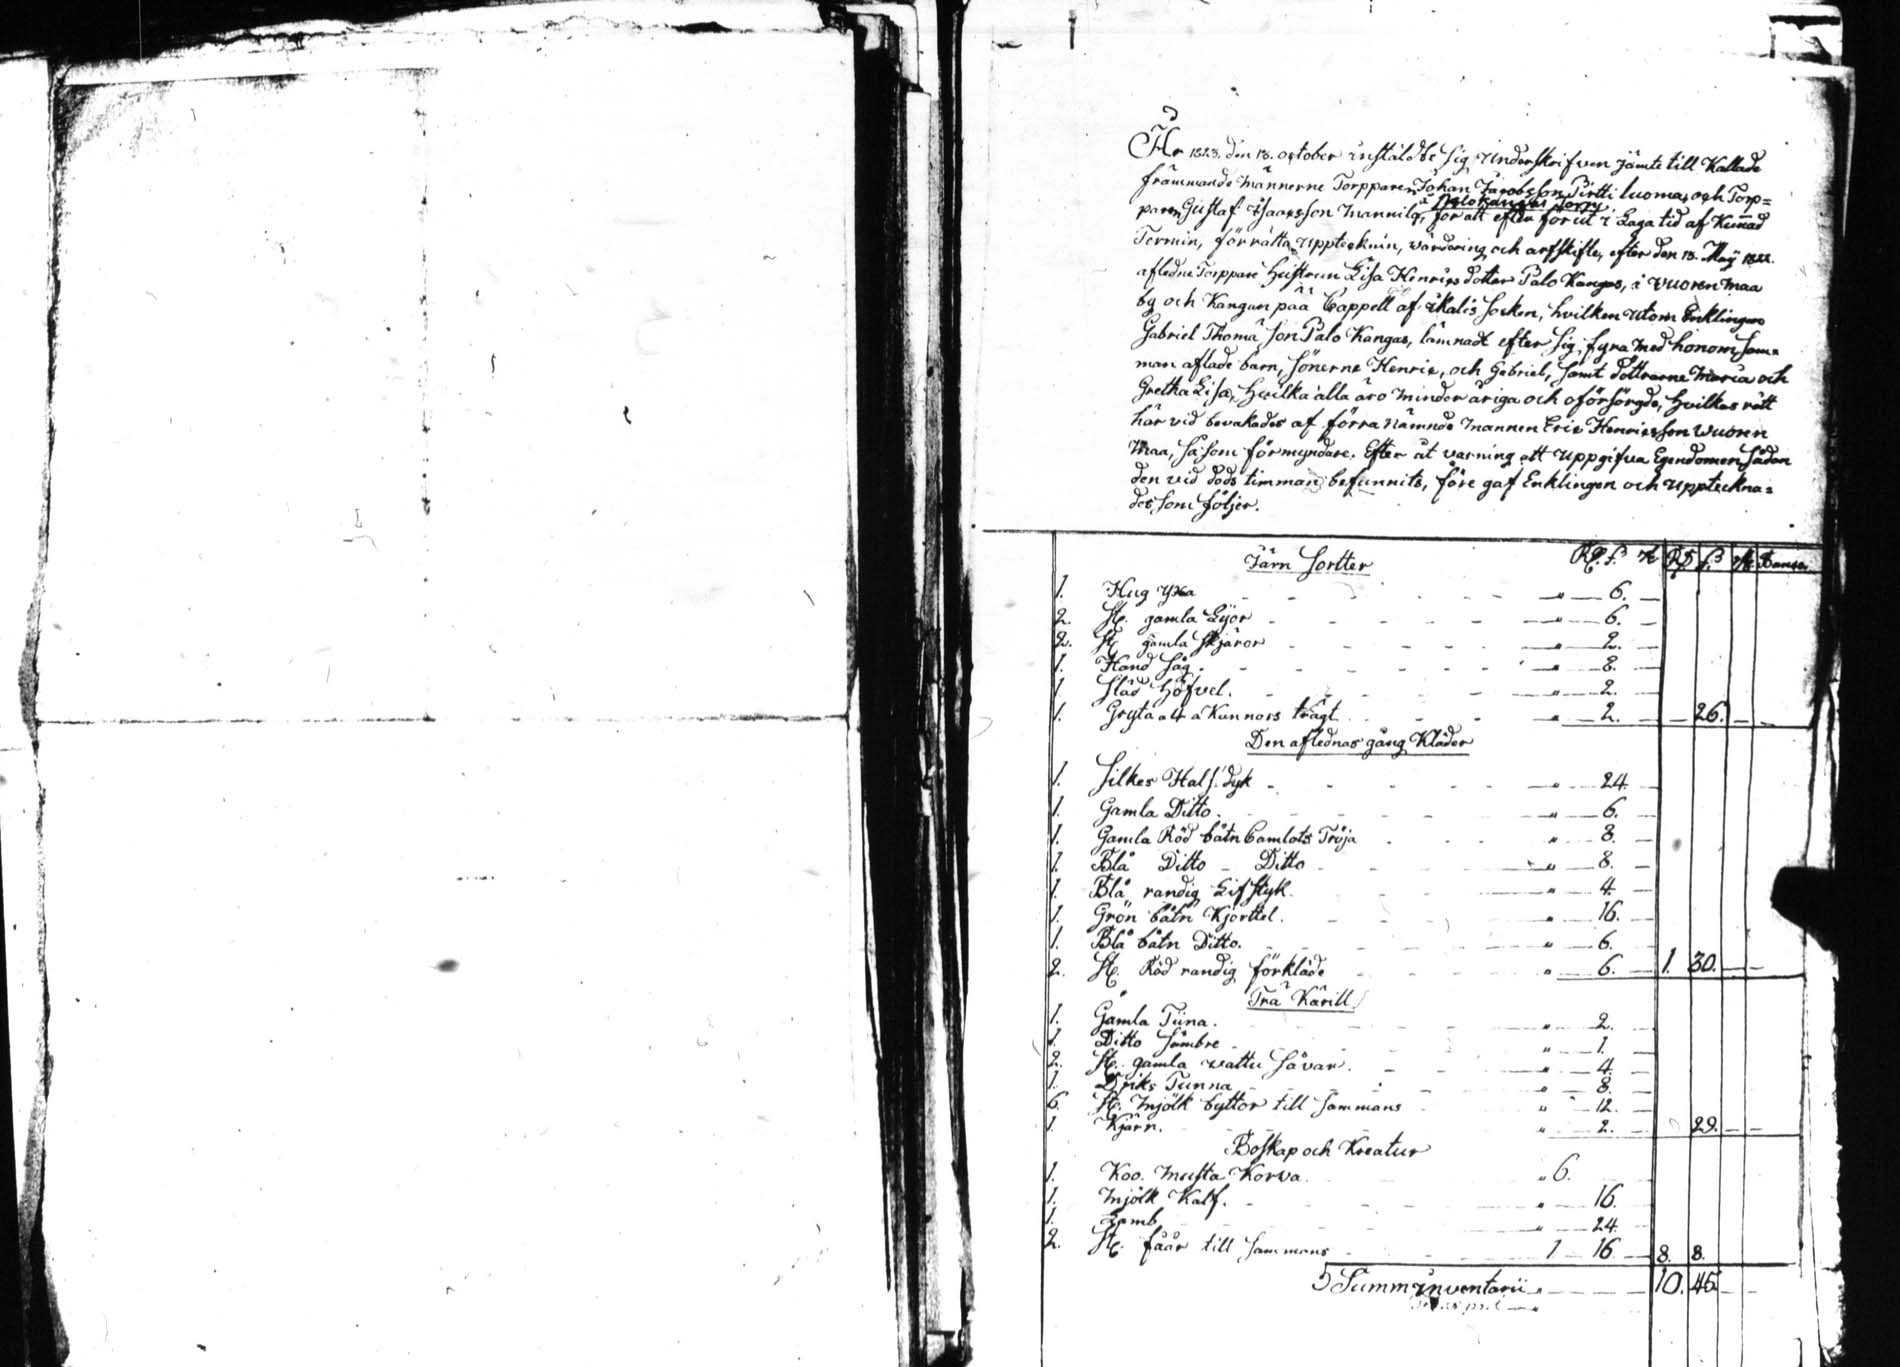 År 1823. den 13. october inståldte sig Underskrifven jämte till Kallade
främmande Männerne Torpparen Johan Jacobsson Pirtti luoma, och Torp=
å Palokangas Torp
paren Gustaf Isaacsson Mannila, för att efter förut i Laga tid af Kunnad
Termin, förrätta Upptecknin, värdering och arfskifte, efter den 13. Maÿ 1822.
afledne Torppare Hustrun Lisa Henricsdotter Palo Kangas, i Vuoren maa
by och Kangan pää Cappell af Ikalis Socken, hvilken utom Enklingen
Gabriel Thomä Son Palo Kangas, lämnadt efter sig, fyra med honom Sam=
man aflade barn, Sönerne Henric, och Gabriel, samt döttrarne Maria och
Gretha Lisa, Hvilka alla äro Minder åriga och oförsörgde, hvilkas rätt
här vid bevakades af förra Nämnde Mannen Eric Henricsson Wuoren
Maa, Så som förmyndare. Efter åt varning att Uppgifva Egendomen Sådan
den vid döds timman befunnits, före gaf Enklingen och Uppteckna=
des, som följer.
Järn Sortter R. S. R R S. R. Banco.
1. Hug Yxa " 6.
2. St. gamla Lÿor " 6.
2. St. gamla Skjäror " 2.
1. Hand Såg. " 8.
1. Slåd Höfvel. " 2.
1. Gryta a 4 a Kunnors trägt " 2. 26.
Den aflednas gång Kläder
1. Silkes Hals duk " 24.
1. Gamla Ditto. " 6.
1. Gamla Röd båtn Camlots Tröja " 8.
1. Blå Ditto Ditto " 8.
1. Blå randig Lifstyk " 4.
1. Grön båtn Kjorttel. " 16.
1. Blå båtn Ditto. " 6.
2. St. Röd randig förkläde " 6. 1. 30.
Trä Kärill
1. Gamla Tiina. " 2.
1. Ditto Såmbre " 1.
2. St. gamla vattu Såvar. " 4.
1. Driks Tunna " 8.
6. St. Mjölk byttor till Sammans " 12.
1. Kjärn. " 2. 29.
Boskap och Kreatur
1. Koo. Musta Korva. " 6.
1. Mjölk Kalf. " 16.
1. Lamb " 24.
2. St. fåår till Sammans 1 16. 8. 8.
Summ Inventarii " 10. 45.